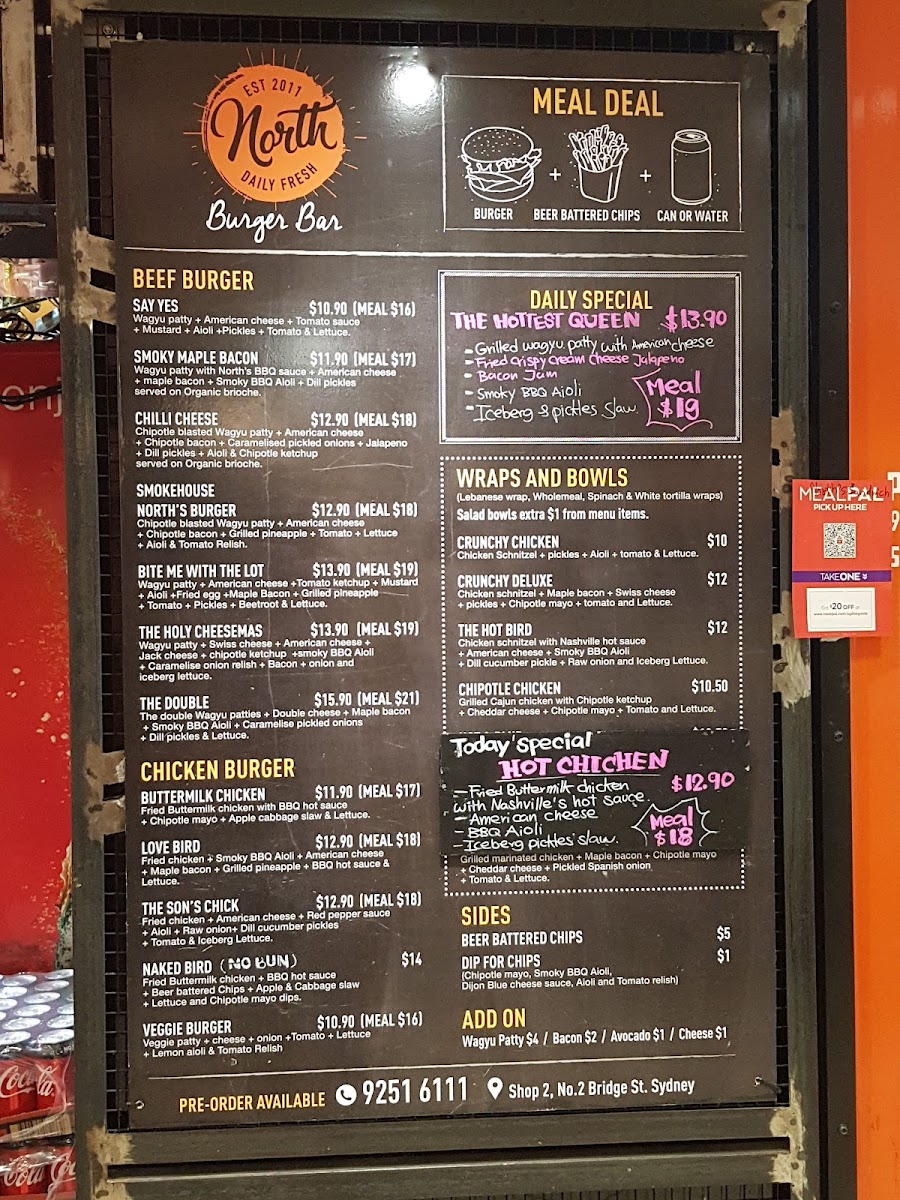 EST 2011
North
DAILY FRESH
Burger Bar
MEAL DEAL
BURGER + BEER BATTERED CHIPS + CAN OR WATER
BEEF BURGER
SAY YES $10.90 (MEAL $16)
Wagyu patty + American cheese + Tomato sauce
+ Mustard + Aioli +Pickles + Tomato & Lettuce.
SMOKY MAPLE BACON $11.90 (MEAL $17)
Wagyu patty with North's BBQ sauce + American cheese
+ maple bacon + Smoky BBQ Aioli + Dill pickles
served on Organic brioche.
CHILLI CHEESE $12.90 (MEAL $18)
Chipotle blasted Wagyu patty + American cheese
+ Chipotle bacon + Caramelised pickled onions + Jalapeno
+ Dill pickles + Aioli & Chipotle ketchup
served on Organic brioche.
SMOKEHOUSE
NORTH'S BURGER $12.90 (MEAL $18)
Chipotle blasted Wagyu patty + American cheese
+ Chipotle bacon + Grilled pineapple + Tomato + Lettuce
+ Aioli & Tomato Relish.
BITE ME WITH THE LOT $13.90 (MEAL $19)
Wagyu patty + American cheese +Tomato ketchup + Mustard
+ Aioli +Fried egg +Maple Bacon + Grilled pineapple
+ Tomato + Pickles + Beetroot & Lettuce.
THE HOLY CHEESEMAS $13.90 (MEAL $19)
Wagyu patty + Swiss cheese + American cheese +
Jack cheese + chipotle ketchup +smoky BBQ Aioli
+ Caramelise onion relish + Bacon + onion and
iceberg lettuce.
THE DOUBLE $15.90 (MEAL $21)
The double Wagyu patties + Double cheese + Maple bacon
+ Smoky BBQ Aioli + Caramelise pickled onions
+ Dill pickles & Lettuce.
CHICKEN BURGER
BUTTERMILK CHICKEN $11.90 (MEAL $17)
Fried Buttermilk chicken with BBQ hot sauce
+ Chipotle mayo + Apple cabbage slaw & Lettuce.
LOVE BIRD $12.90 (MEAL $18)
Fried chicken + Smoky BBQ Aioli + American cheese
+ Maple bacon + Grilled pineapple + BBQ hot sauce &
Lettuce.
THE SON'S CHICK $12.90 (MEAL $18)
Fried chicken + American cheese + Red pepper sauce
+ Aioli + Raw onion+ Dill cucumber pickles
+ Tomato & Iceberg Lettuce.
NAKED BIRD (NO BUN) $14
Fried Buttermilk chicken + BBQ hot sauce
+ Beer battered Chips + Apple & Cabbage slaw
+ Lettuce and Chipotle mayo dips.
VEGGIE BURGER $10.90 (MEAL $16)
Veggie patty + cheese + onion +Tomato + Lettuce
+ Lemon aioli & Tomato Relish
DAILY SPECIAL
THE HOTTEST QUEEN $13.90
- Grilled wagyu patty with American cheese
- Fried crispy cream cheese Jalapeno
- Bacon Jam
- Smoky BBQ Aioli
- Iceberg & pickles slaw.
Meal
$19
WRAPS AND BOWLS
(Lebanese wrap, Wholemeal, Spinach & White tortilla wraps)
Salad bowls extra $1 from menu items.
CRUNCHY CHICKEN $10
Chicken Schnitzel + pickles + Aioli + tomato & Lettuce.
CRUNCHY DELUXE $12
Chicken schnitzel + Maple bacon + Swiss cheese
+ pickles + Chipotle mayo + tomato and Lettuce.
THE HOT BIRD $12
Chicken schnitzel with Nashville hot sauce
+ American cheese + Smoky BBQ Aioli
+ Dill cucumber pickle + Raw onion and Iceberg Lettuce.
CHIPOTLE CHICKEN $10.50
Grilled Cajun chicken with Chipotle ketchup
+ Cheddar cheese + Chipotle mayo + Tomato and Lettuce.
Today' special
HOT CHICHEN $12.90
- Fried Buttermilk chicken
with Nashville's hot sauce
- American cheese
- BBQ Aioli
- Iceberg pickles slaw.
Meal
$18
Grilled marinated chicken + Maple bacon + Chipotle mayo
+ Cheddar cheese + Pickled Spanish onion
+ Tomato & Lettuce.
SIDES
BEER BATTERED CHIPS $5
DIP FOR CHIPS $1
(Chipotle mayo, Smoky BBQ Aioli,
Dijon Blue cheese sauce, Aioli and Tomato relish)
ADD ON
Wagyu Patty $4 / Bacon $2 / Avocado $1 / Cheese $1
PRE-ORDER AVAILABLE 9251 6111 Shop 2, No.2 Bridge St. Sydney
MEALPAL
PICK UP HERE
TAKE ONE
$20 OFF
Coca-Cola